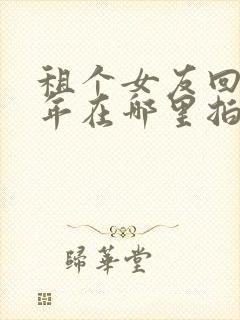 租个女友回
年在哪里拍
歸華堂